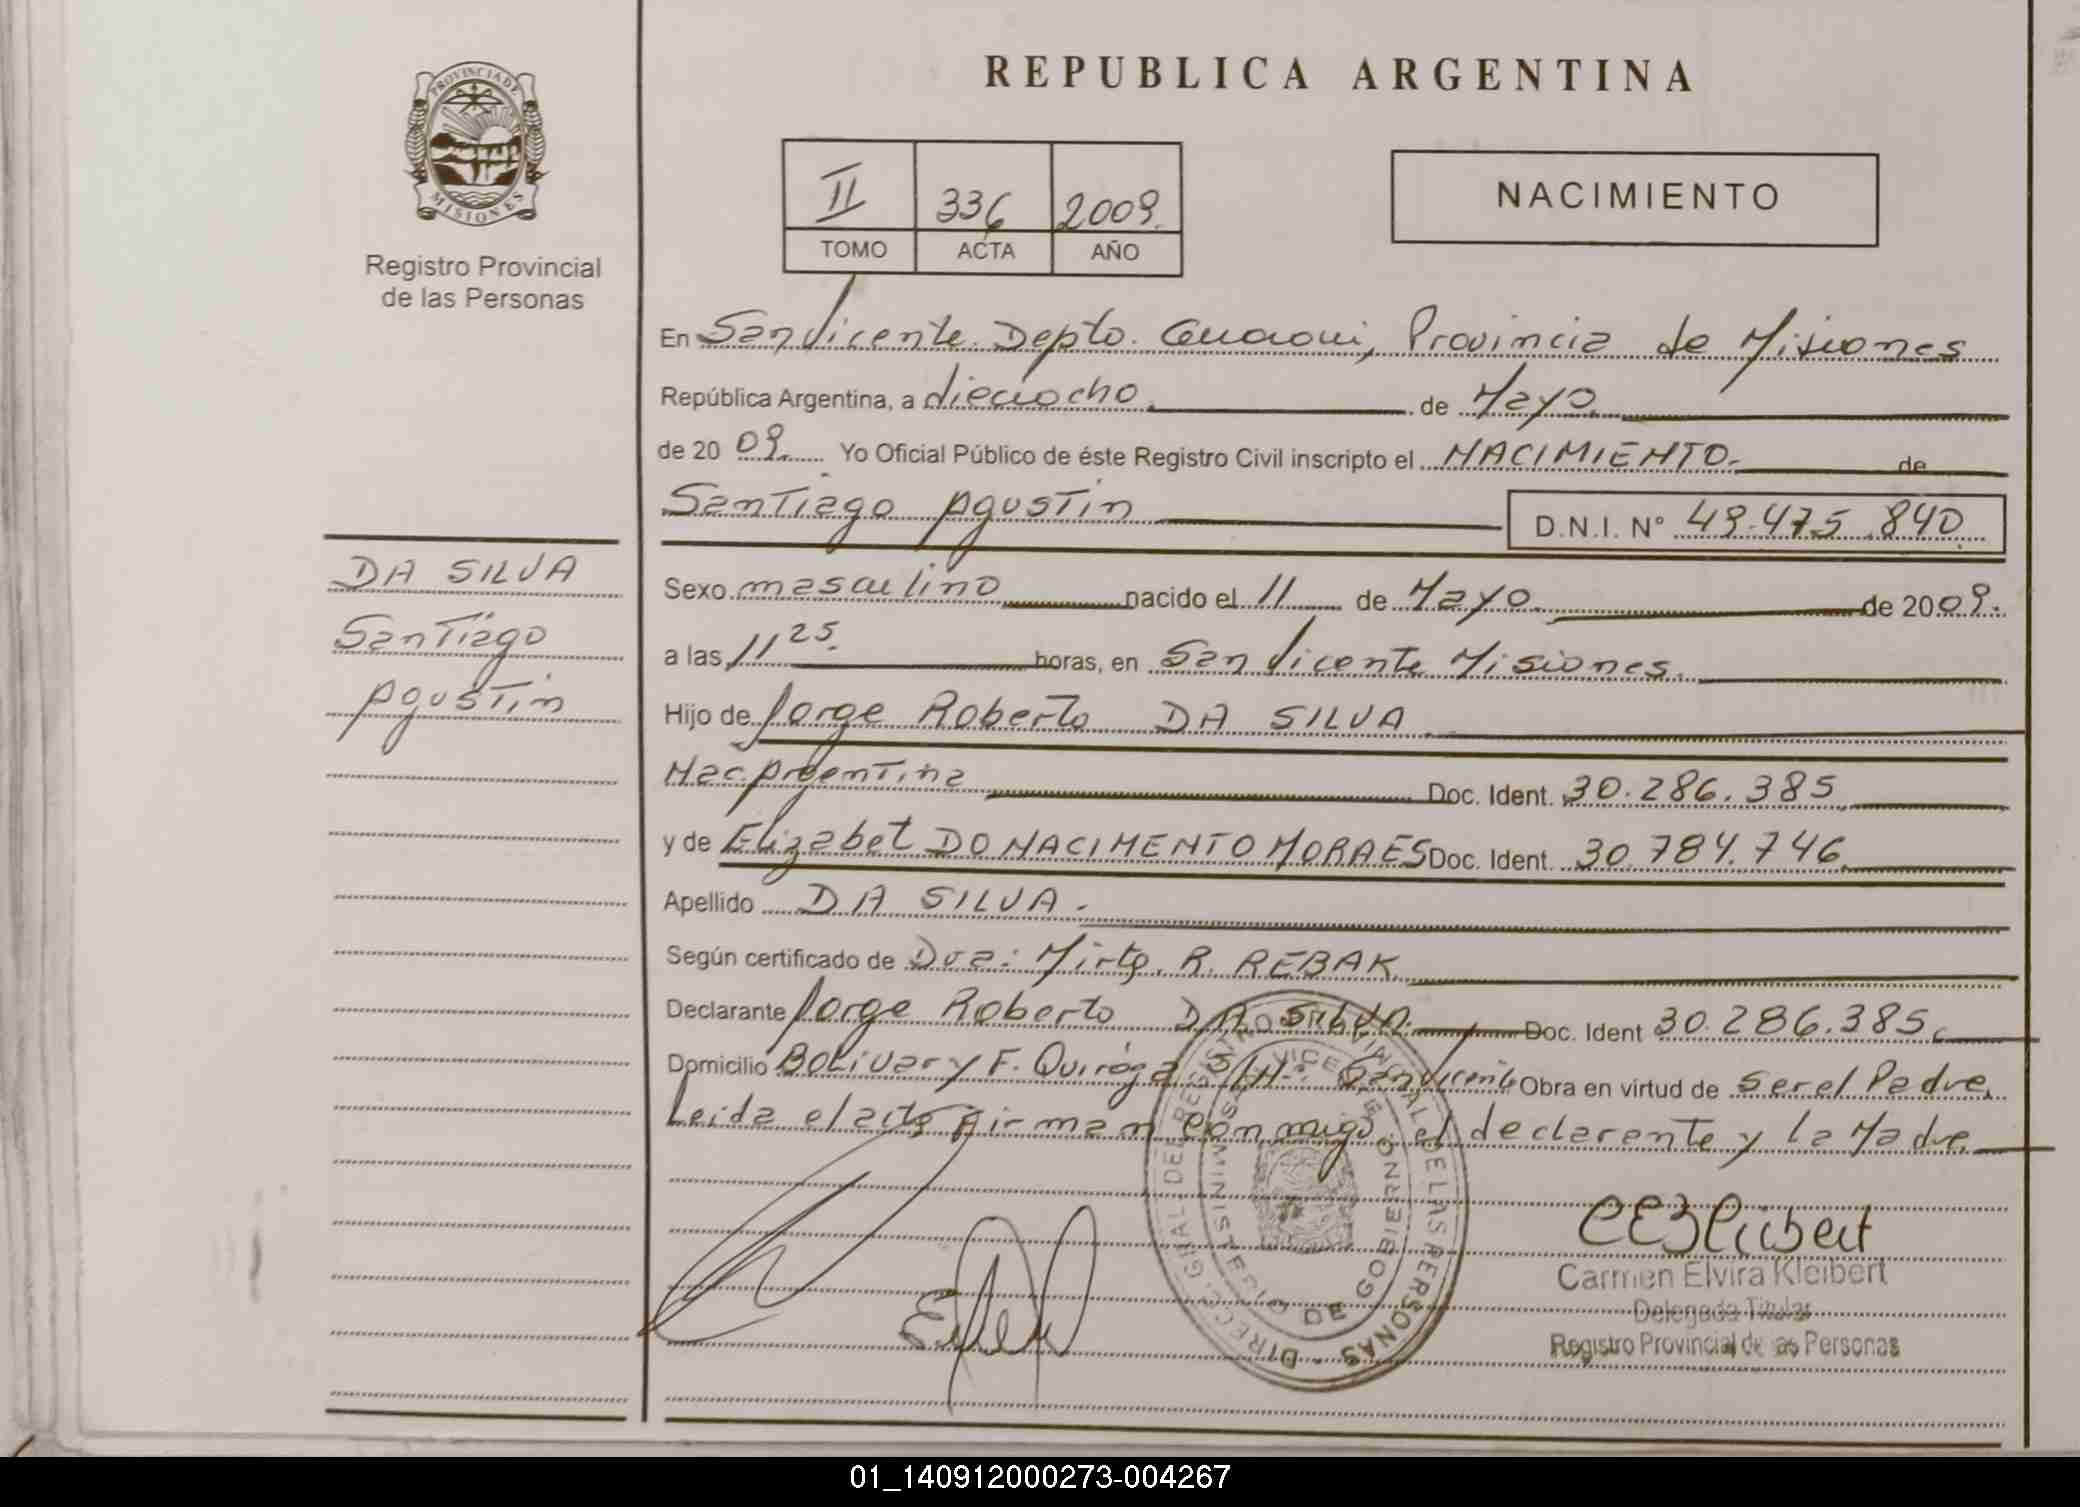 PROVINCIA DE
MISIONES
Registro Provincial
de las Personas
DA SILVA
Santiago
Agustin
REPUBLICA ARGENTINA
II 336 2009.
TOMO ACTA AÑO
NACIMIENTO
En San Vicente. Depto. Guarani, Provincia de Misiones
República Argentina, a dieciocho. de Mayo
de 20 09. Yo Oficial Público de éste Registro Civil inscripto el NACIMIENTO- de
Santiago Agustin D.N.I. N° 49.475.840
Sexo masculino nacido el 11 de Mayo. de 2009.
a las 11 25. horas, en San Vicente Misiones.
Hijo de Jorge Roberto DA SILVA
Nac. Argentina Doc. Ident. 30.286.385
y de Elizabet DO NACIMENTO MORAES Doc. Ident. 30.784.746
Apellido DA SILVA.
Según certificado de Dra: Mirta. R. REBAK
Declarante Jorge Roberto DA SILVA. Doc. Ident 30.286.385.
Domicilio Bolivar y F. Quiroga S/Nº. San Vicente Obra en virtud de ser el Padre.
Leida el acta firman conmigo, el declarente y la Madre.
DIREC. GRAL DEL REGISTRO PROVINCIAL DE LAS PERSONAS
MINISTERIO DE GOBIERNO
Carmen Elvira Kleibert
Delegada Titular
Registro Provincial de las Personas
01_140912000273-004267